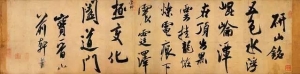 研山銘
五色水浮
崑崙潭
在頂出黑
雲挂龍怪
爍電痕下
震霆澤厚
極變化
闔道門
寶晉山
前軒書